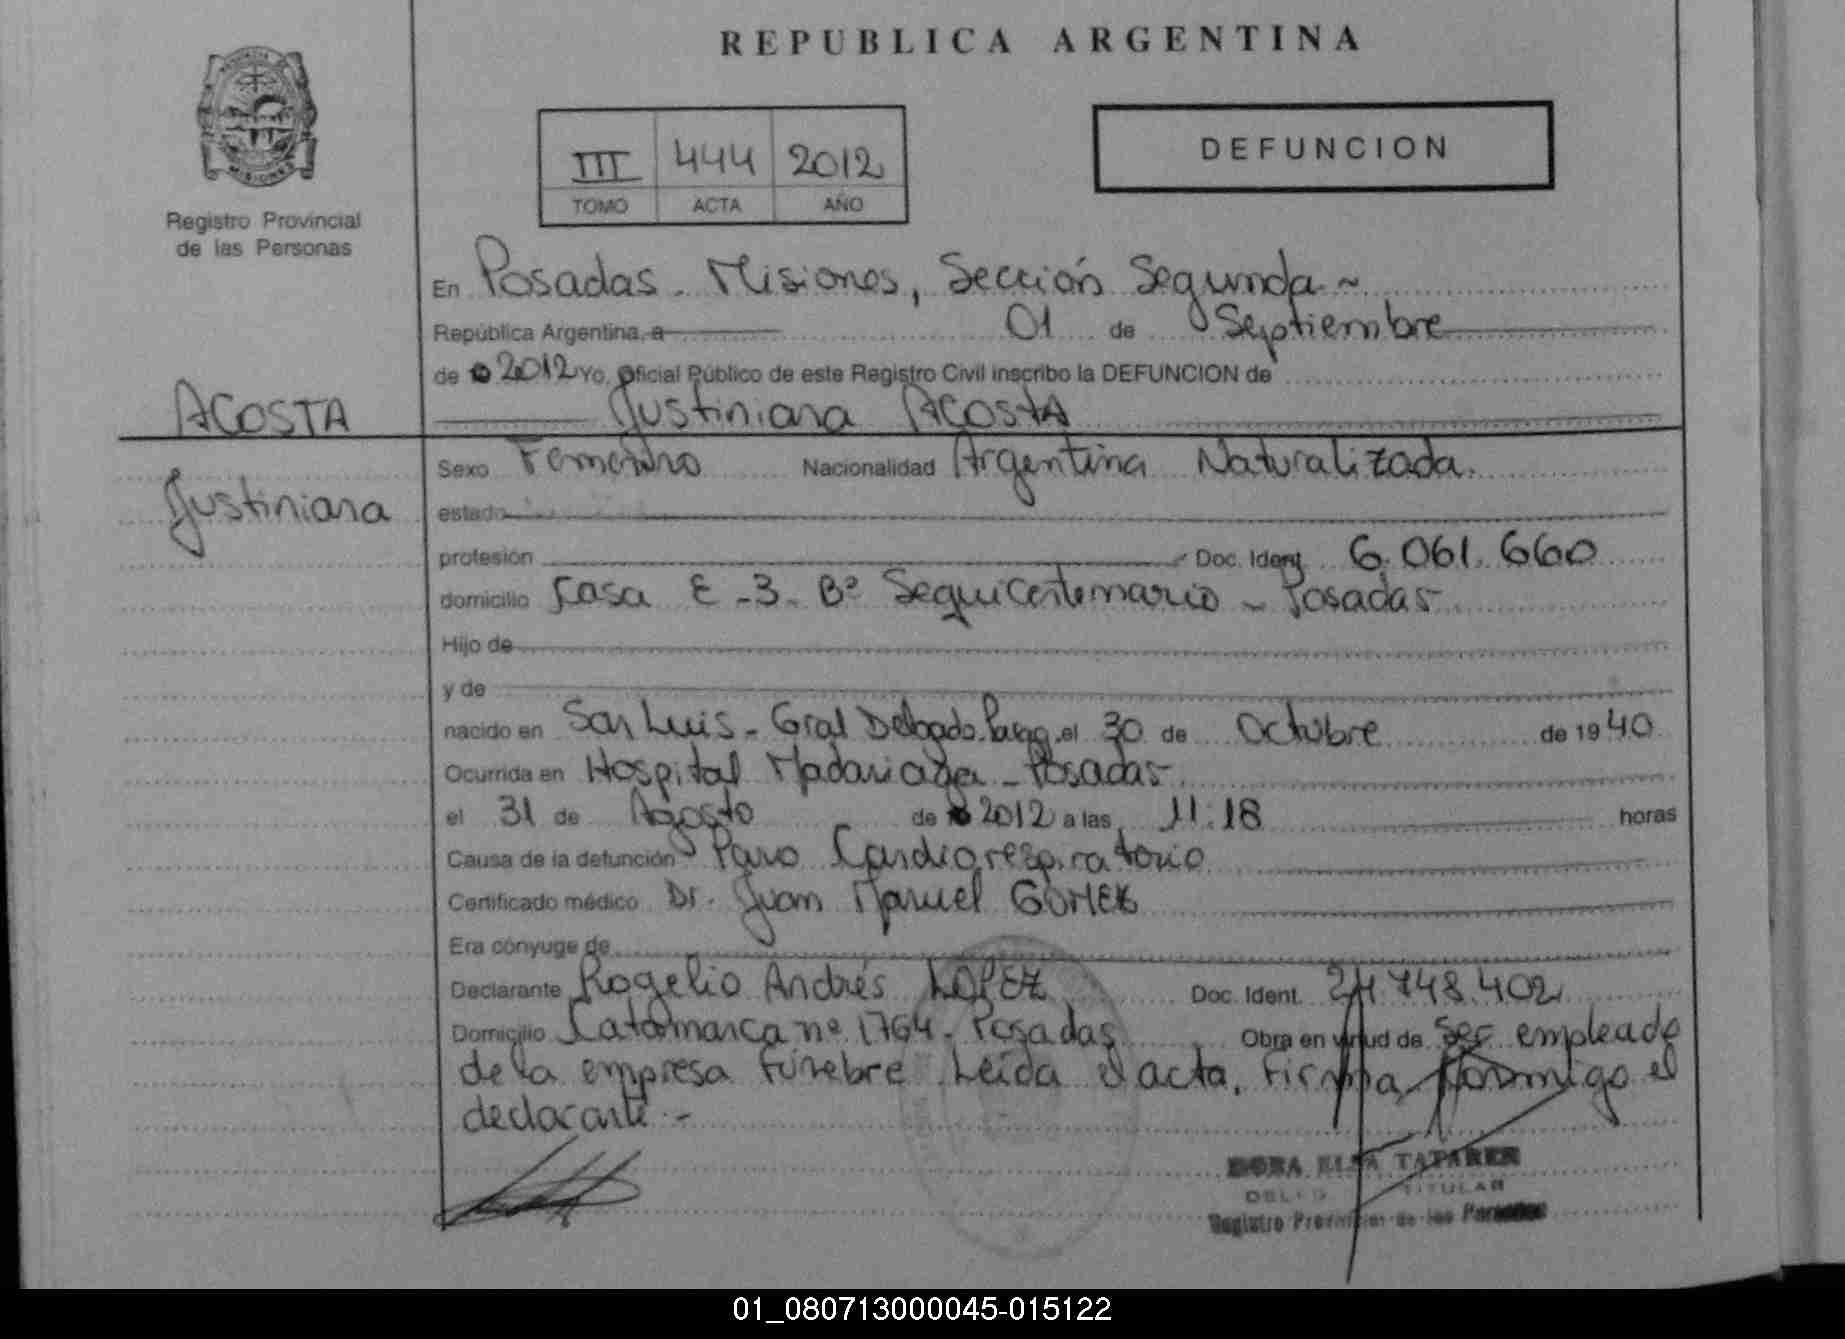 REPUBLICA ARGENTINA
MISIONES
Registro Provincial
de las Personas
III 444 2012
TOMO ACTA AÑO
DEFUNCION
En Posadas - Misiones, Sección Segunda ~
República Argentina, a 01 de Septiembre
de 2012 Yo, Oficial Público de este Registro Civil inscribo la DEFUNCION de
Justiniana ACOSTA
ACOSTA
Justiniana
Sexo Femenino Nacionalidad Argentina Naturalizada.
estado
profesión Doc. Ident. 6.061.660
domicilio Casa E-3- Bº Sequicentenario - Posadas
Hijo de
y de
nacido en San Luis - Gral Delgado. Parag. el 30 de Octubre de 1940
Ocurrida en Hospital Madariaga - Posadas
el 31 de Agosto de 2012 a las 11:18 horas
Causa de la defunción Paro Cardiorespiratorio
Certificado médico Dr. Juan Manuel
Era cónyuge de
Declarante Rogelio Andrés LOPEZ Doc. Ident. 24.748.402
Domicilio Catamarca nº 1764 - Posadas Obra en virtud de ser empleado
de la empresa fúnebre. Leída el acta, firma conmigo el
declarante.-
TITULAR
Registro Provincial de las Personas
01_080713000045-015122